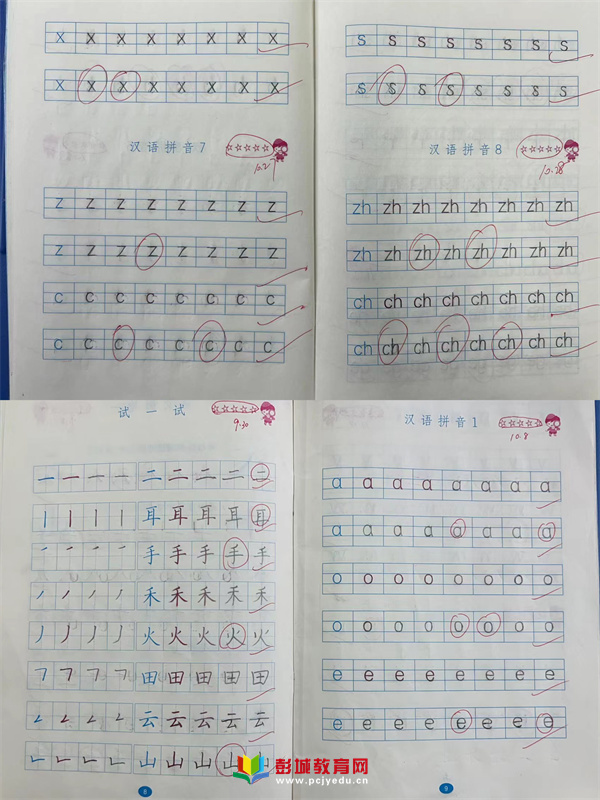 x x x x x x x x
x x x x x x x x
汉语拼音7
☆☆☆☆☆
z z z z z z z z
z z z z z z z z
c c c c c c c c
c c c c c c c c
s s s s s s s s
s s s s s s s s
汉语拼音8
☆☆☆☆☆
10.28
zh zh zh zh zh zh zh zh
zh zh zh zh zh zh zh zh
ch ch ch ch ch ch ch ch
ch ch ch ch ch ch ch ch
试一试
☆☆☆☆☆
9.30
一 一 一 一 二 二 二 二 二
丨 丨 丨 丨 耳 耳 耳 耳 耳
手 手 手 手 手
禾 禾 禾 禾 禾
丿 丿 丿 丿 火 火 火 火 火
田 田 田 田 田
云 云 云 云 云
山 山 山 山 山
8
汉语拼音1
☆☆☆☆☆
10.8
a a a a a a a a
a a a a a a a a
o o o o o o o o
o o o o o o o o
e e e e e e e e
e e e e e e e e
9
彭城教育网
www.pcjyedu.cn